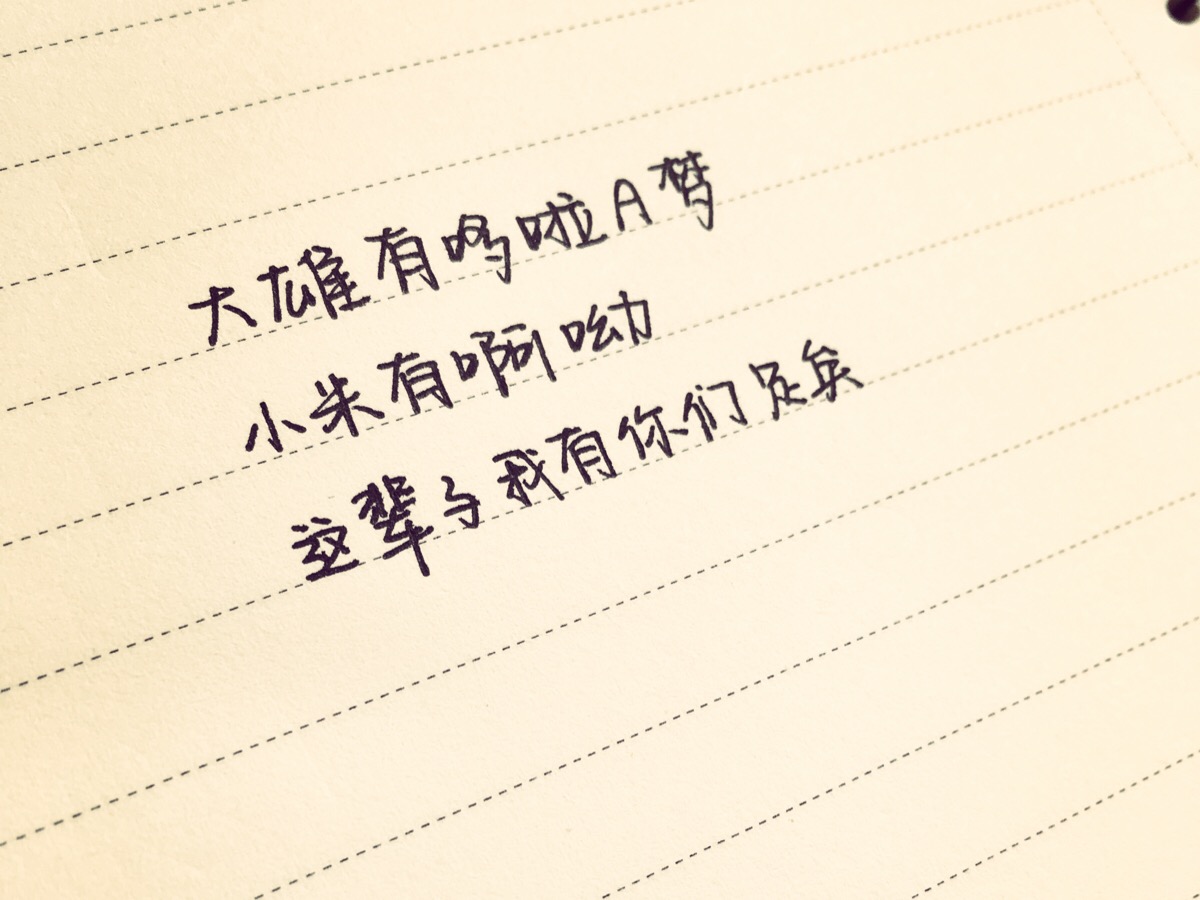 大雄有哆啦A梦
小朱有啊呦
这辈子我有你们足矣